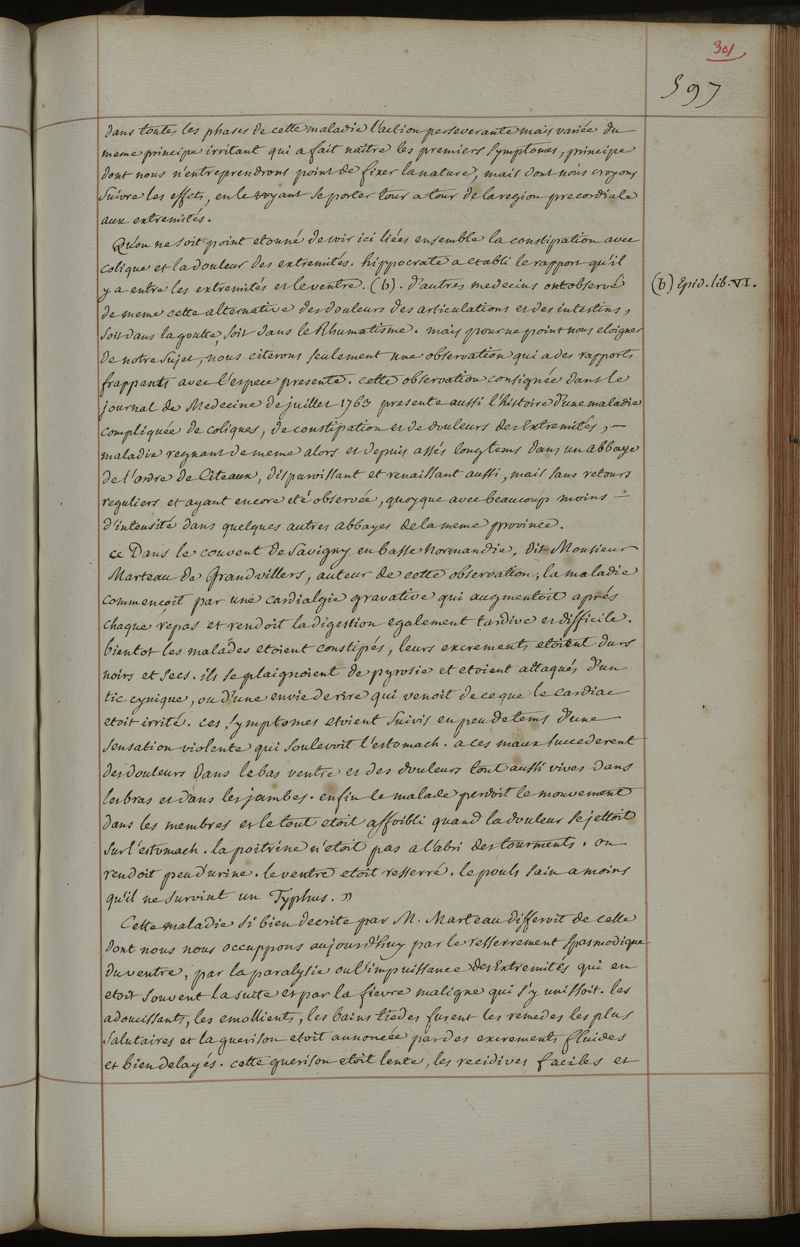 301
597
dans toutes les phases de cette maladie l'action perseverante mais variée du
meme principe irritant qui a fait naitre les premiers symptomes, principe
dont nous n'entreprendrons point de fixer la nature, mais dont nous croyons
suivre les effets, en le voyant se porter tour a tour de la region precordiale
aux extremités.
Qu'on ne soit point etonné de voir ici liées ensemble la constipation avec
colique et la douleur des extremités. hippocrate a etabli le rapport qu'il
y a entre les extremités et le ventre. (b). d'autres medecins ont observé
(b) Epid. lib. VI.
de meme cette alternative des douleurs des articulations et des intestins,
soit dans la goutte, soit dans le Rhumatisme. mais pour ne point nous eloigner
de notre sujet, nous citerons seulement une observation qui a des rapports
frappants avec l'espece presente. cette observation consignée dans le
journal de Medecine de juillet 1763 presente aussi l'histoire d'une maladie
compliquée de coliques, de constipation et de douleurs des Extremités, —
maladie regnant de meme alors et depuis assés longtems dans un abbaye
de l'ordre de Citeaux, disparoissant et renaissant aussi, mais sans retours
reguliers et ayant encore eté observée, quoyque avec beaucoup moins —
d'intensité dans quelques autres abbayes de la meme province.
« Dans le couvent de Savigny en basse Normandie, dit Monsieur
Marteau de Grandvillers, auteur de cette observation, la maladie
commençoit par une cardialgie gravative qui augmentoit aprés
chaque repas et rendoit la digestion egalement tardive et difficile.
bientot les malades etoient constipés, leurs excrements etoient durs
noirs et secs. ils se plaignoient de pyrosie et etoient attaqués d'un
tic cynique, ou d'une envie de rire qui venoit de ce que le cardiac
etoit irrité. ces symptomes etoient suivis en peu de tems d'une
sensation violente qui soulevoit l'estomach. a ces maux succederent
des douleurs dans le bas ventre et des douleurs tout aussi vives dans
les bras et dans les jambes. enfin le malade perdoit le mouvement
dans les membres et le tout etoit affoibli quand la douleur se jettoit
sur l'estomach. la poitrine n'etoit pas a l'abri des tourments. on
rendoit peu d'urine. le ventre etoit resserré. le pouls sain a moins
qu'il ne survint un Typhus. »
Cette maladie si bien decrite par M. Marteau differoit de celle
dont nous nous occuppons aujourd'huy par le resserrement spasmodique
du ventre, par la paralysie ou l'impuissance des Extremités qui en
etoit souvent la suite et par la fievre maligne qui s'y unissoit. les
adoucissants, les emollients, les bains tiedes furent les remedes les plus
salutaires et la guerison etoit annoncée par des excrements fluides
et bien delayés. cette guerison etoit lente, les recidives faciles et